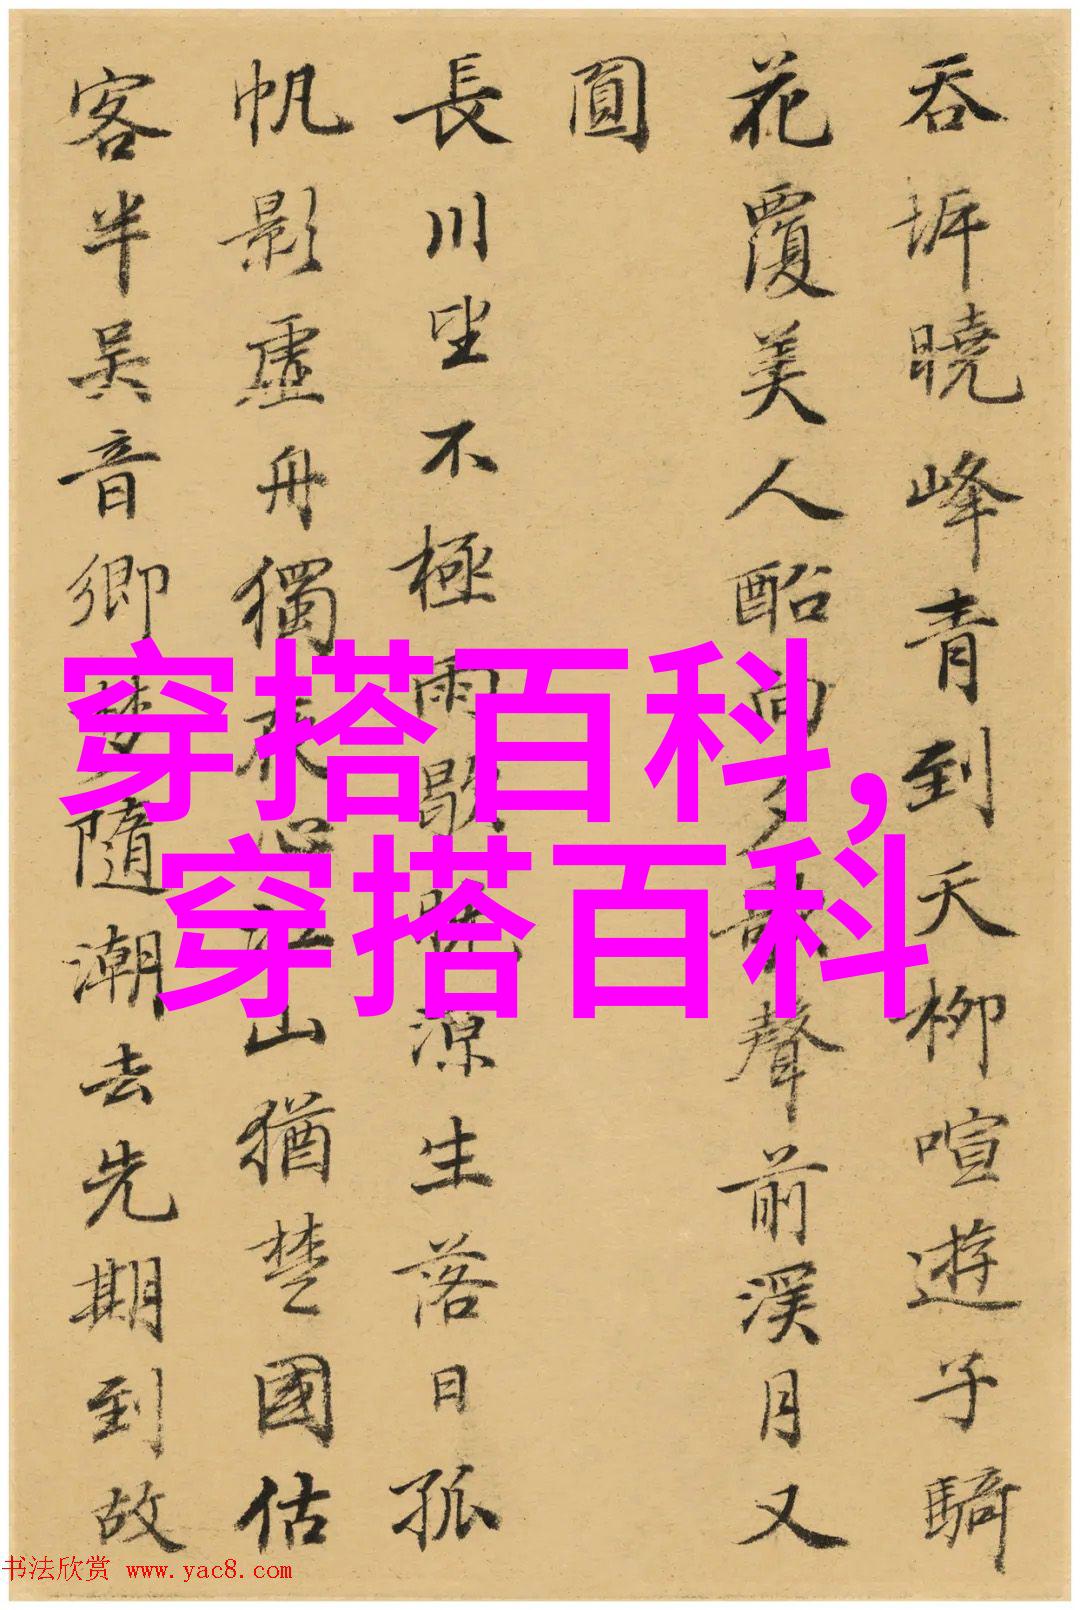 吞坼曉峰青到天柳喧遊子騎
花覆美人酩向夕歌聲前溪月又
圓
長川坐不極雨歇晚源生落日孤
帆影虛舟獨夜心江山猶楚國估
客半吳音鄉夢隨潮去先期到故
穿搭百科,
穿搭百科
书法欣赏 www.yac8.com